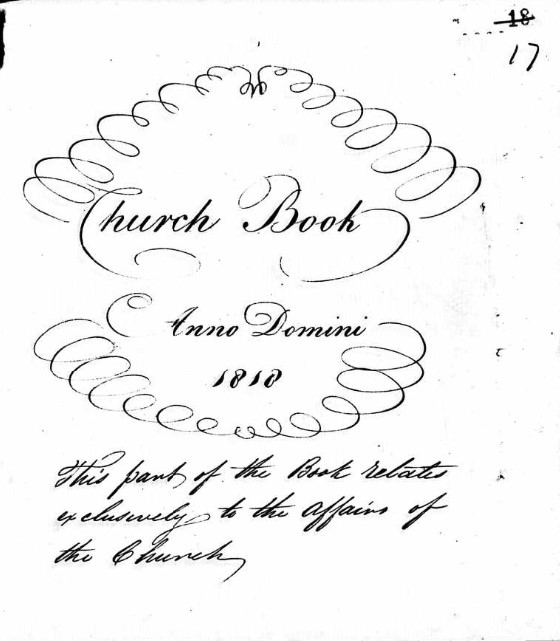 18
17
Church Book
Anno Domini
1818
This part of the Book relates
exclusively to the affairs of
the Church